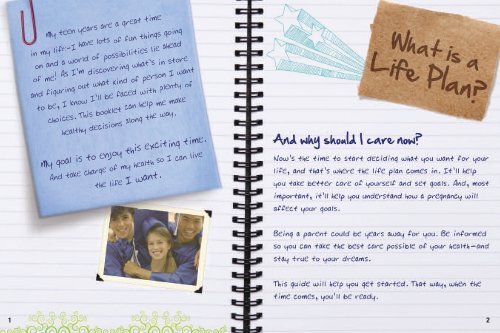 My teen years are a great time
in my life:-I have lots of fun things going
on and a world of possibilities lie ahead
of me! As I'm discovering what's in store
and figuring out what kind of person I want
to be, I know I'll be faced with plenty of
choices. This booklet can help me make
healthy decisions along the way.
My goal is to enjoy this exciting time.
And take charge of my health so I can live
the life I want.
1
What is a
Life Plan?
And why should I care now?
Now's the time to start deciding what you want for your
life, and that's where the life plan comes in. It'll help
you take better care of yourself and set goals. And, most
important, it'll help you understand how a pregnancy will
affect your goals.
Being a parent could be years away for you. Be informed
so you can take the best care possible of your health—and
stay true to your dreams.
This guide will help you get started. That way, when the
time comes, you'll be ready.
2